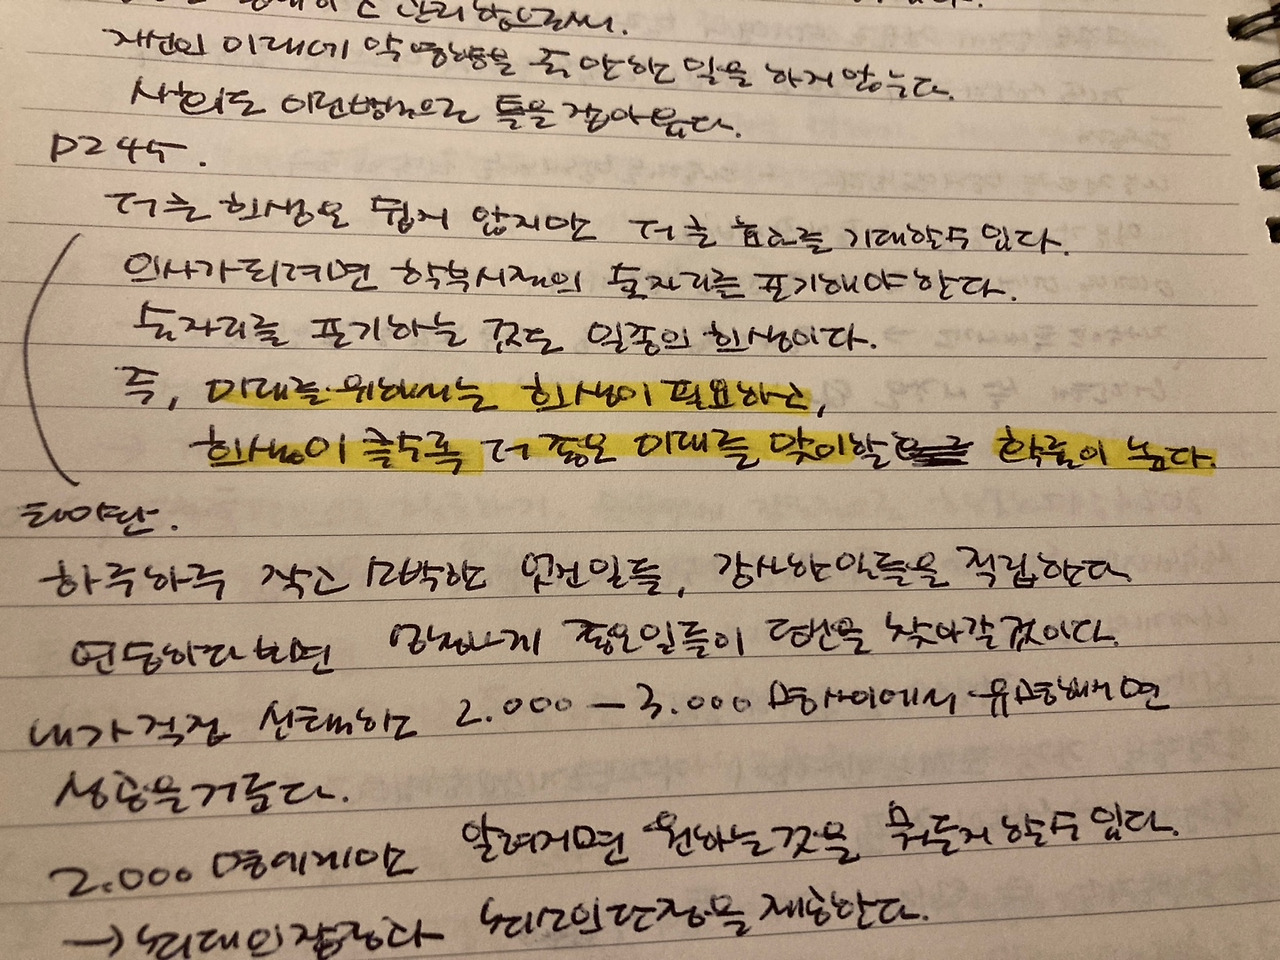 관리함으로써.
자신의 미래에 악영향을 주 만한 일을 하지 않는다.
사회도 이런방식으로 틀을 잡아왔다.
P245.
더 큰 희생은 쉽지 않지만 더 큰 효과를 기대할수 있다.
의사가 되려면 학부시절의 술자리를 포기해야 한다.
술자리를 포기하는 것도 일종의 희생이다.
즉, 미래를 위해서는 희생이 필요하고,
희생이 클수록 더 좋은 미래를 맞이할 확률이 높다.
타이탄.
하루하루 작고 소박한 멋진일들, 감사한일들을 적립한다
연동하다보면 엄청나게 좋은일들이 당신을 찾아갈것이다.
내가 직접 선택하는 2.000 – 3.000 명사이에서 유명해지면
성공을 거둔다.
2.000 명에게만 알려지면 원하는것을 뭐든지 할수 있다.
→ 최대의 장점과 최소의 단점을 제공한다.